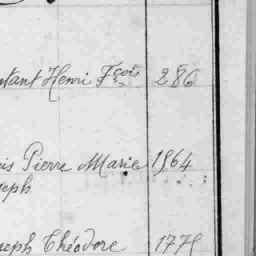 ntant Henri Fçois 286
is Pierre Marie 1964
seph
seph Théodore 1779